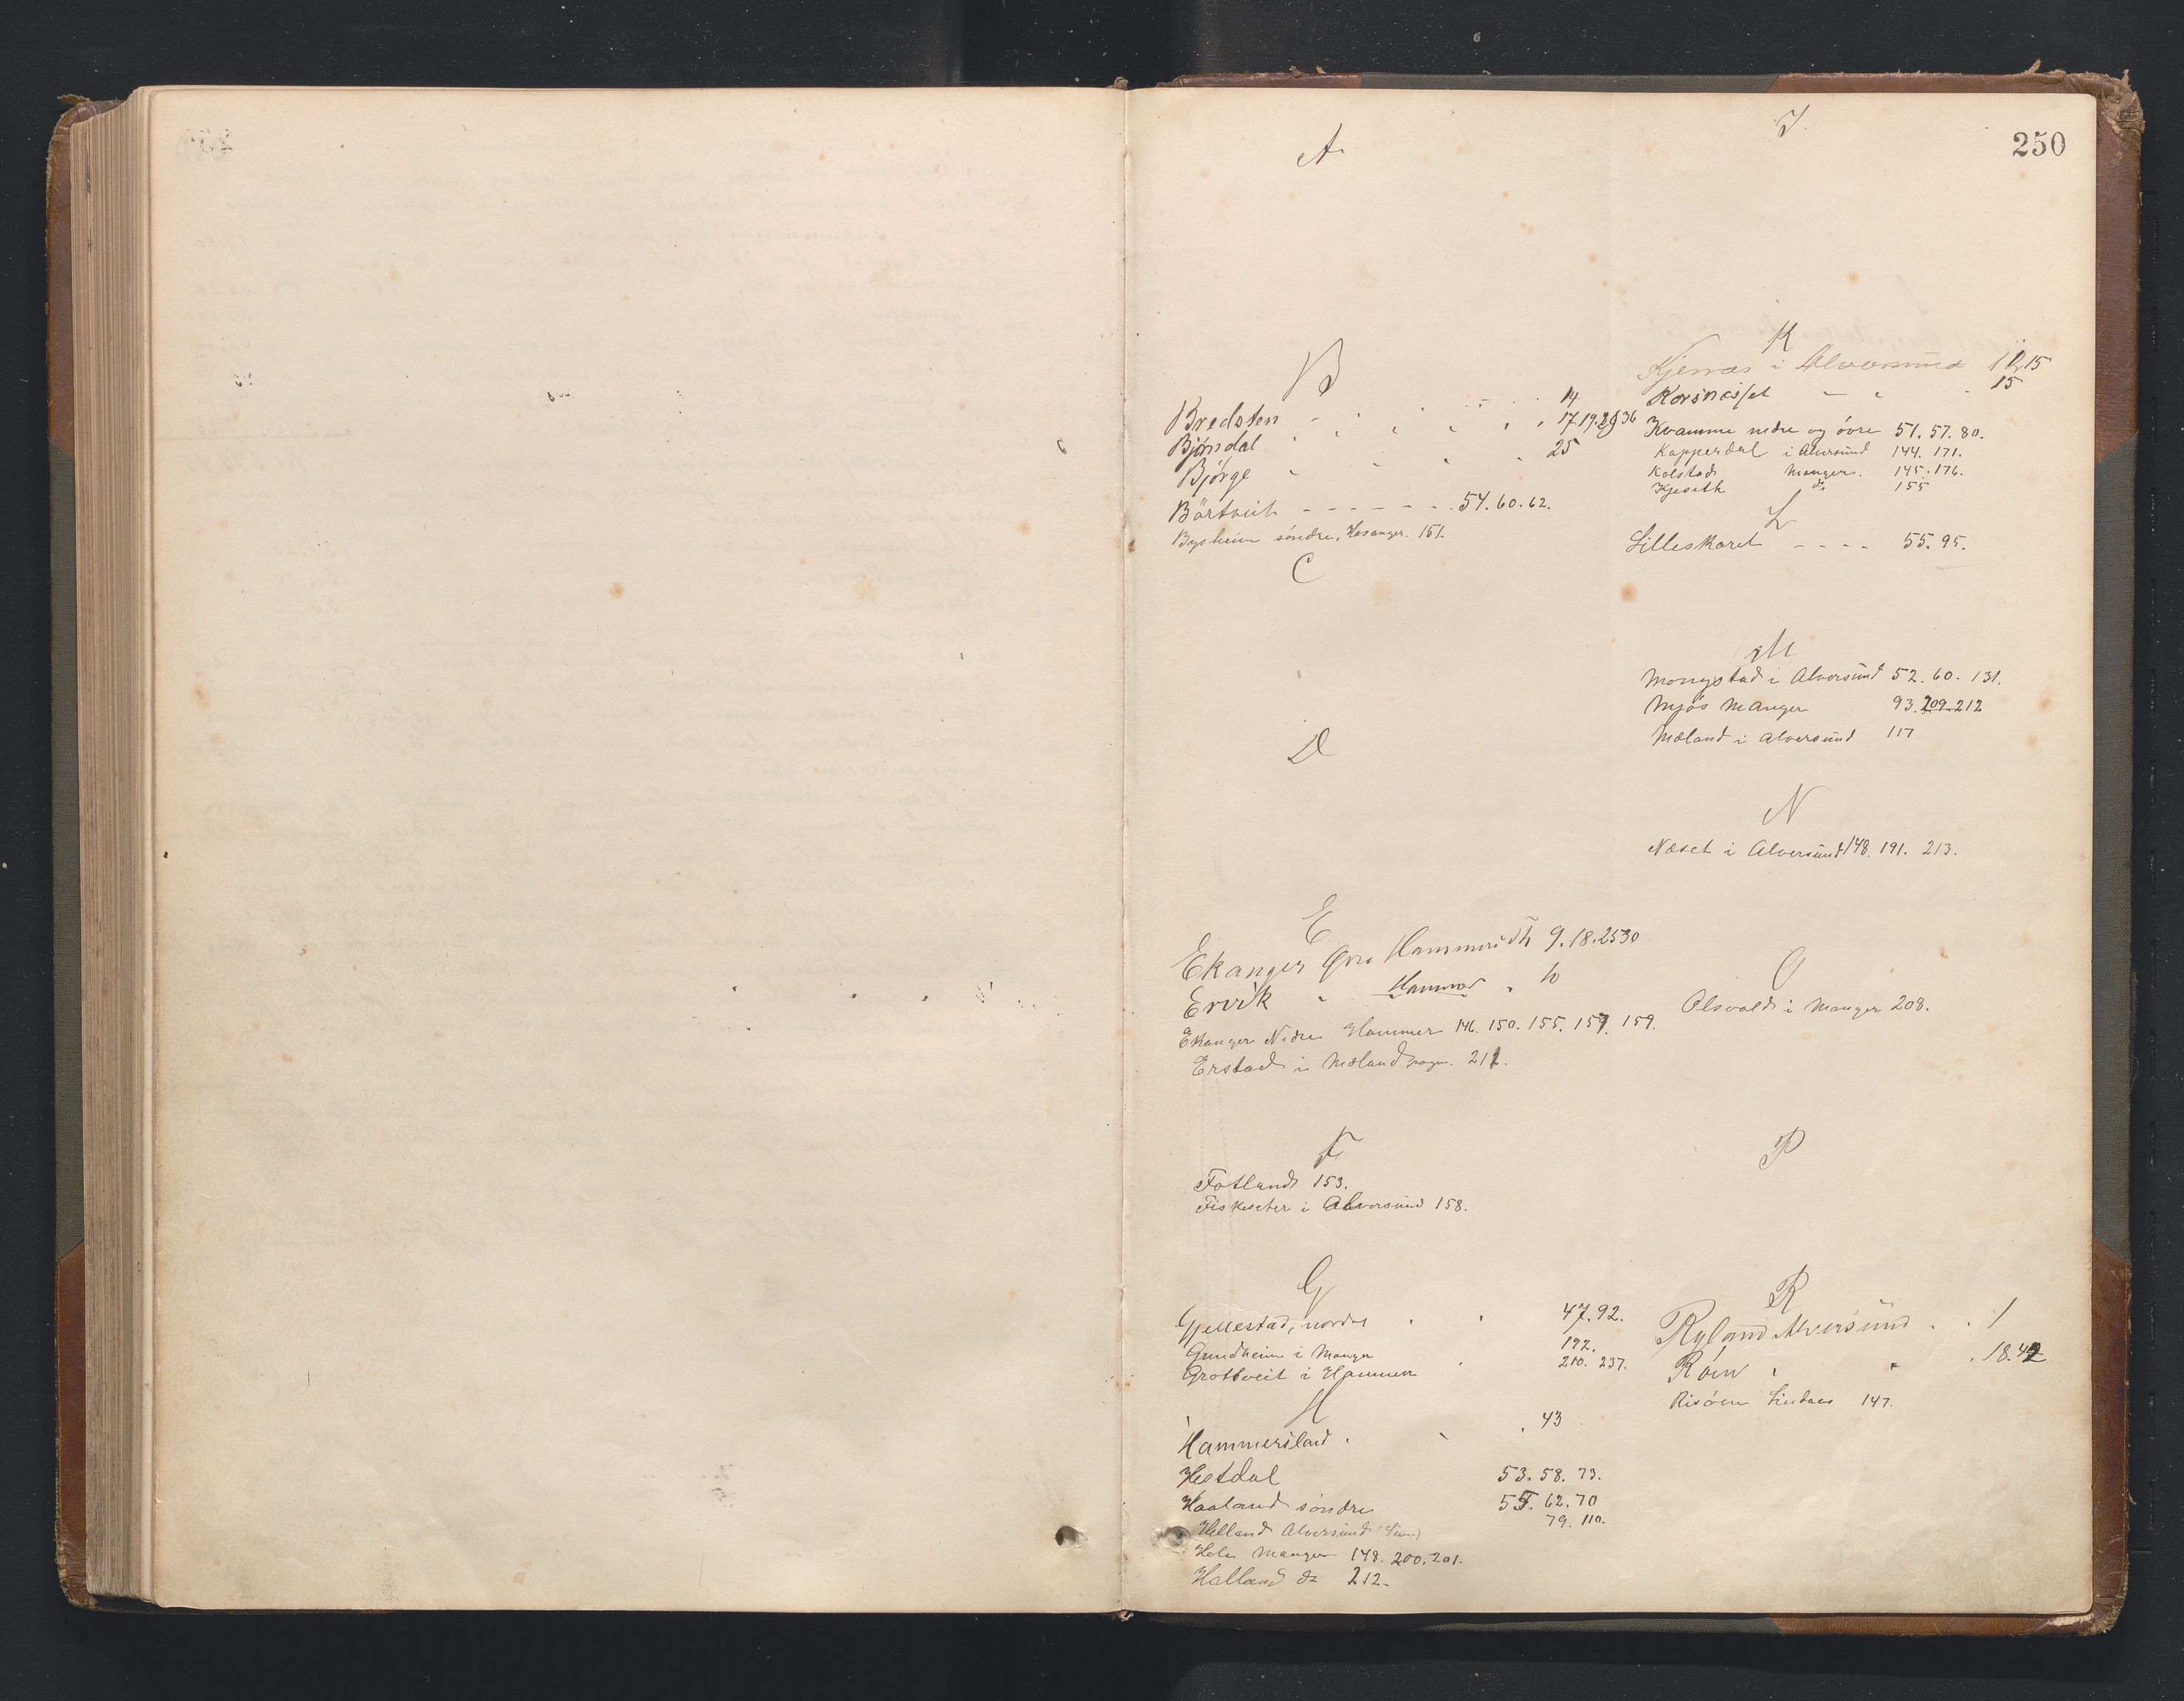 250
A
B
Bredsten 14
Bjørndal 17.19.29 36
Bjørge 25
Börtveit - - - - - - 54. 60. 62.
søndre, Hosanger. 151.
C
D
E
Ekanger Øvre Hammer 9.18.25 30
Ervik " Hammer " 10
Ekanger Nedre Hammer 146. 150. 155. 157. 159.
Erstad i Mæland sogn. 212.
F
Fotland 153.
Fiskeseter i Alversund 158.
G
Gjellestad, nordre 47. 92.
Grundheim i Manger 192.
Grottveit i Hammer 210. 237.
H
Hammersland 43
Hestdal 53. 58. 73.
Haaland søndre 55. 62. 70
79. 110.
Helland Alversund
Hele Manger 148. 200. 201.
Halland do 212.
I
K
Kjenæs i Alversund 15
Korsnæsset - " 15
Kvamme nedre og övre 51. 57. 80.
Kopperdal i Alversund 144. 171.
Kolstad Manger. 145. 176.
Kjeseth do 155
L
Lilleskaret - - - - 55. 95.
M
Mongstad i Alversund 52. 60. 131.
Mjös Manger 93. 209. 212
Mæland i Alversund 117
N
Næset i Alversund 148. 191. 213.
O
Olsvold i Manger 208.
P
R
Ryland Alversund 1
18.42
Risöen Lindaas 147.